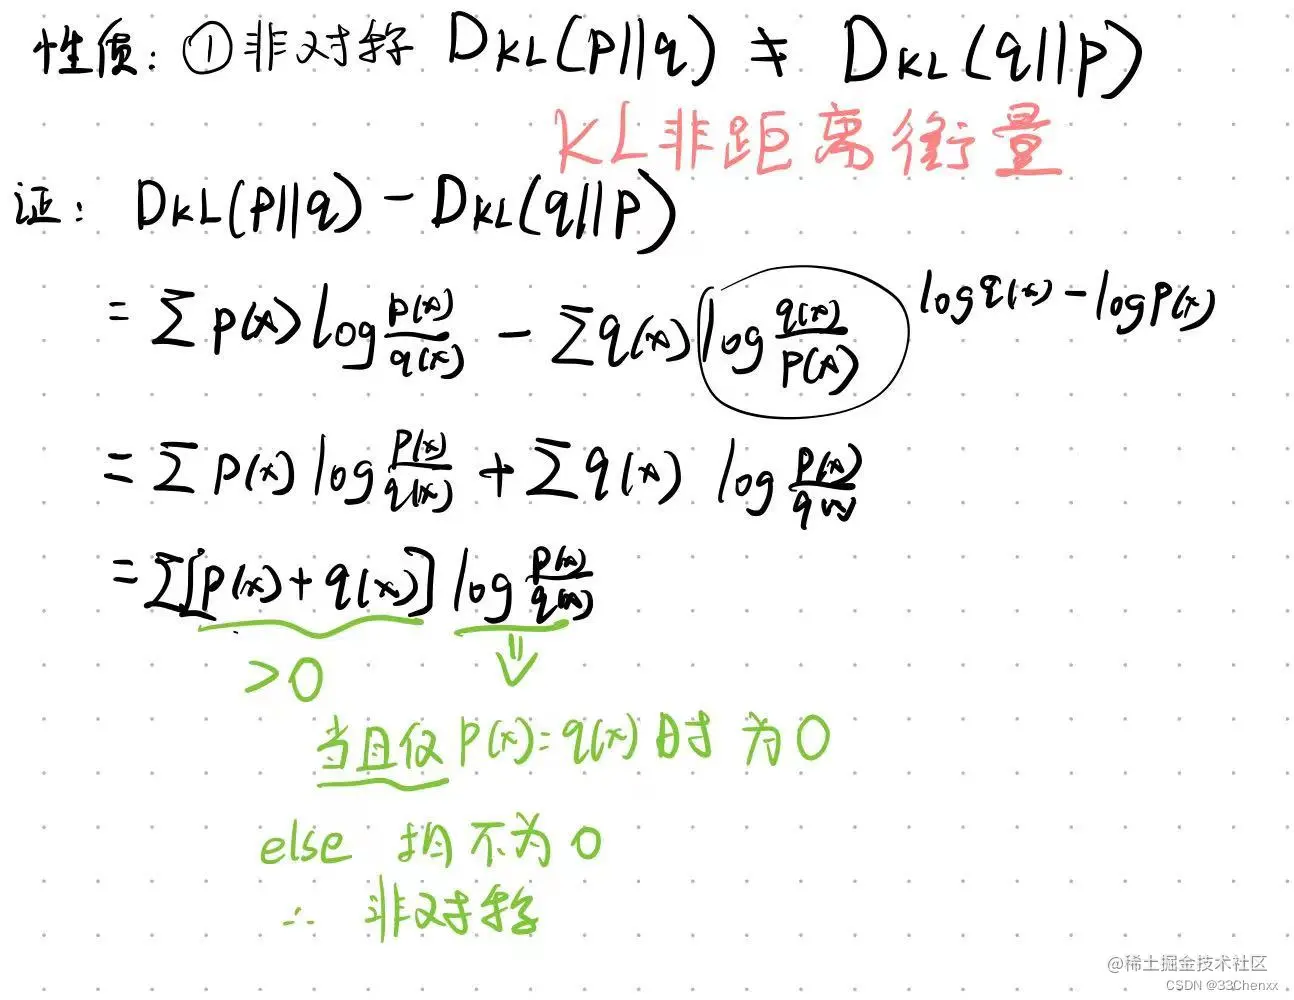 性质: ①非对称 DKL(p||q) ≠ DKL(q||p)
KL非距离衡量
证: DKL(p||q) - DKL(q||p)
= ∑ p(x) log p(x)/q(x) - ∑ q(x) log q(x)/p(x) log q(x) - log p(x)
= ∑ p(x) log p(x)/q(x) + ∑ q(x) log p(x)/q(x)
= ∑[p(x) + q(x)] log p(x)/q(x)
>0 ⇓
当且仅 p(x) = q(x) 时 为 0
else 均不为 0
∴ 非对称
@稀土掘金技术社区
CSDN @33Chenxx